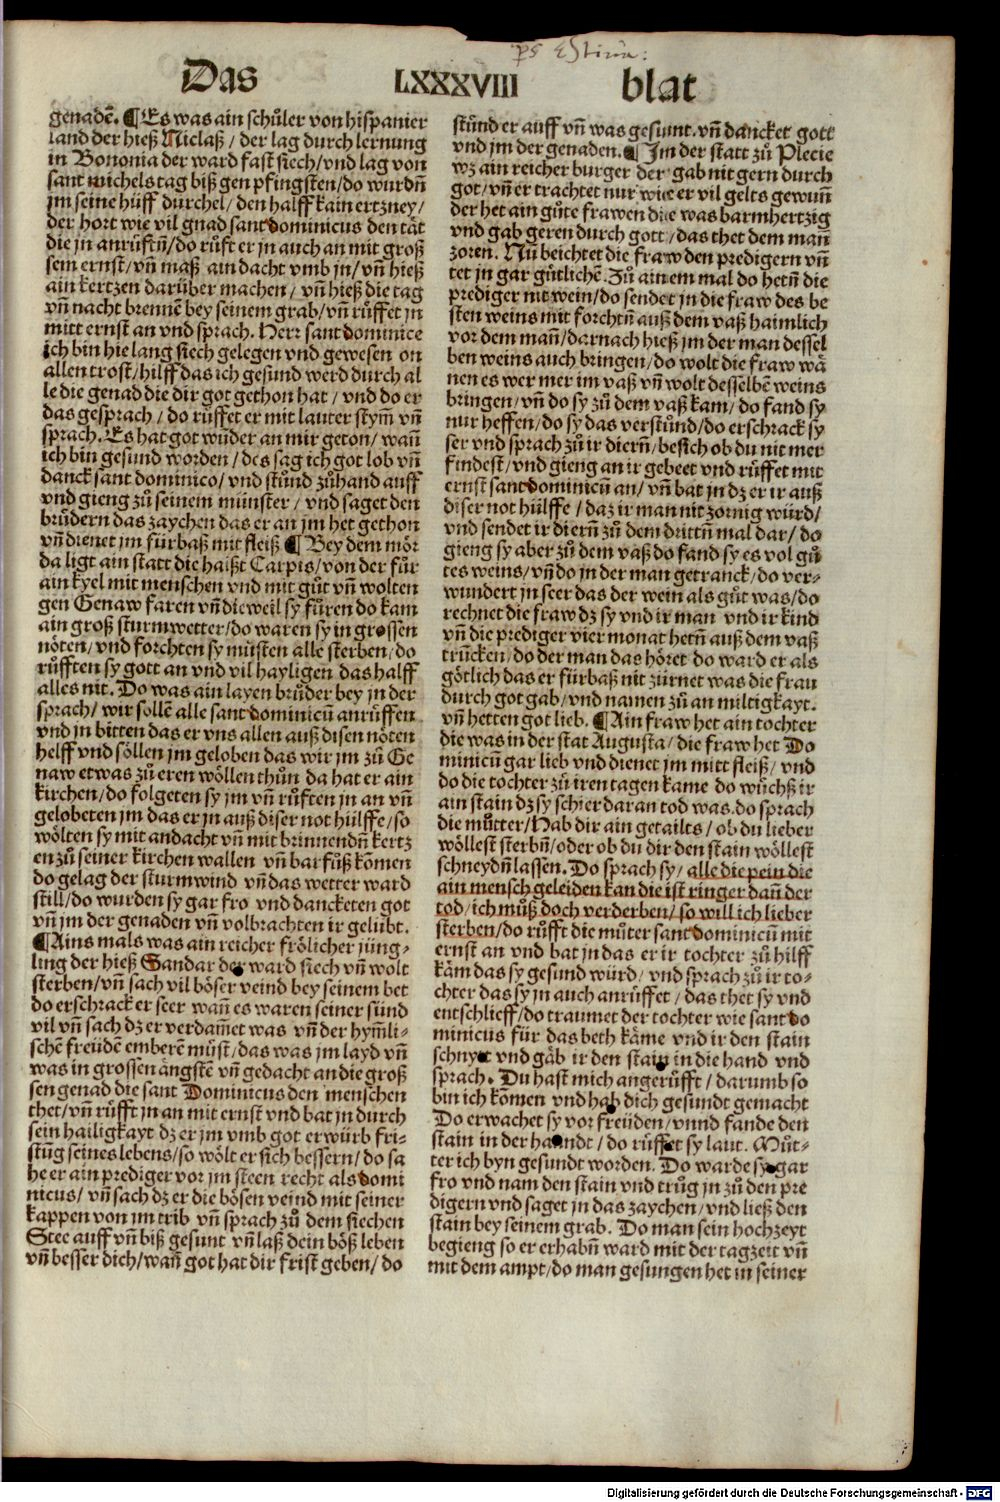 Das LXXXVIII blat
genadē. ¶ Es was ain schůler von hispanier
land der hieß Niclaß / der lag durch lernung
in Bononia der ward fast siech / vnd lag von
sant michels tag biß gen pfingsten / do wurdn̄
jm seine hüff durchel / den halff kain ertzney /
der hort wie vil gnad sant dominicus den tät
die jn anrůftn̄ / do růft er jn auch an mit groß
sem ernst / vn̄ maß ain dacht vmb jn / vn̄ hieß
ain kertzen darüber machen / vn̄ hieß die tag
vn̄ nacht brennē bey seinem grab / vn̄ růffet jn
mitt ernst an vnd sprach. Herr sant dominice
ich bin hie lang siech gelegen vnd gewesen on
allen trost / hilff das ich gesund werd durch al
le die genad die dir got gethon hat / vnd do er
das gesprach / do růffet er mit lauter stym̄ vn̄
sprach. Es hat got wūder an mir geton / wan̄
ich bin gesund worden / des sag ich got lob vn̄
danck sant dominico / vnd stůnd zůhand auff
vnd gieng zů seinem münster / vnd saget den
brůdern das zaychen das er an jm het gethon
vn̄ dienet jm fürbaß mit fleiß ¶ Bey dem mör
da ligt ain statt die haißt Carpis / von der für
ain kyel mit menschen vnd mit gůt vn̄ wolten
gen Genaw faren vn̄ die weil sy fůren do kam
ain groß sturmwetter / do waren sy in grossen
nöten / vnd forchten sy můsten alle sterben / do
růfften sy gott an vnd vil hayligen das halff
alles nit. Do was ain layen brůder bey jn der
sprach / wir sollē alle sant dominicū anrůffen
vnd jn bitten das er vns allen auß disen nöten
helff vnd söllen jm geloben das wir jm zů Ge
naw etwas zů eren wöllen thůn da hat er ain
kirchen / do folgeten sy jm vn̄ růften jn an vn̄
gelobeten jm das er jn auß diser not hülffe / so
wölten sy mit andacht vn̄ mit brinnendn̄ kertz
en zů seiner kirchen wallen vn̄ barfůß kōmen
do gelag der sturmwind vn̄ das wetter ward
still / do wurden sy gar fro vnd dancketen got
vn̄ jm der genaden vn̄ volbrachten ir gelübt.
¶ Ains mals was ain reicher frölicher jüng-
ling der hieß Sandar der ward siech vn̄ wolt
sterben / vn̄ sach vil böser veind bey seinem bet
do erschrack er seer wan̄ es waren seiner sünd
vil vn̄ sach dz er verdam̄et was vn̄ der hym̄li-
schē freüdē emberē můst / das was jm layd vn̄
was in grossen ängstē vn̄ gedacht an die groß
sen genad die sant Dominicus den menschen
thet / vn̄ růfft jn an mit ernst vnd bat jn durch
sein hailigkayt dz er jm vmb got erwürb fri-
stūg seines lebens / so wölt er sich bessern / do sa
he er ain prediger vor jm steen recht als domi
nicus / vn̄ sach dz er die bösen veind mit seiner
kappen von jm trib vn̄ sprach zů dem siechen
Stee auff vn̄ biß gesunt vn̄ laß dein böß leben
vn̄ besser dich / wan̄ got hat dir frist geben / do
stůnd er auff vn̄ was gesunnt. vn̄ dancket gott
vnd jm der genaden. ¶ Jm der statt zů Plecie
wz ain reicher burger der gab nit gern durch
got / vn̄ er trachtet nur wie er vil gelts gewun̄
der het ain gůte frawen die was barmhertzig
vnd gab geren durch gott / das thet dem man̄
zoren. Nū beichtet die fraw den predigern vn̄
tet jn gar gütlichē. Zů ainem mal do hetn̄ die
prediger nit wein / do sendet jn die fraw des be
sten weins mit forchtn̄ auß dem vaß haimlich
vor dem man̄ / darnach hieß jm der man dessel
ben weins auch bringen / do wolt die fraw wä
nen es wer mer im vaß vn̄ wolt desselbē weins
bringen / vn̄ do sy zů dem vaß kam / do fand sy
nur heffen / do sy das verstůnd / do erschrack sy
ser vnd sprach zů ir diern̄ / besich ob du nit mer
findest / vnd gieng an ir gebeet vnd růffet mit
ernst sant dominicū an / vn̄ bat jn dz er ir auß
diser not hülffe / daz ir man nit zornig würd /
vnd sendet ir diern̄ zů dem drittn̄ mal dar / do
gieng sy aber zů dem vaß do fand sy es vol gů
tes weins / vn̄ do jn der man getranck / do ver-
wundert jn seer das der wein als gůt was / do
rechnet die fraw dz sy vnd ir man vnd ir kind
vn̄ die prediger vier monat hetn̄ auß dem vaß
trūcken / do der man das höret do ward er als
götlich das er fürbaß nit zürnet was die frau
durch got gab / vnd namen zů an miltigkayt.
vn̄ hetten got lieb. ¶ Ain fraw het ain tochter
die was in der stat Augusta / die fraw het Do
minicū gar lieb vnd dienet jm mitt fleiß / vnd
do die tochter zů iren tagen kame do wůchß ir
ain stain dz sy schier dar an tod was. do sprach
die můtter / Hab dir ain getailts / ob du lieber
wöllest sterbn̄ / oder ob du dir den stain wöllest
schneydn̄ lassen. Do sprach sy / alle die pein die
ain mensch geleiden kan die ist ringer dan̄ der
tod / ich můß doch verderben / so will ich lieber
sterben / do růfft die můter sant dominicū mit
ernst an vnd bat jn das er ir tochter zů hilff
käm das sy gesund würd / vnd sprach zů ir to-
chter das sy jn auch anrůffet / das thet sy vnd
entschlieff / do traumet der tochter wie sant do
minicus für das beth käme vnd ir den stain
vnd gäb ir den stain in die hand vnd
sprach. Du hast mich angerůfft / darumb so
bin ich kōmen vnd hab dich gesundt gemacht
Do erwachet sy vor freüden / vnnd fande den
stain in der handt / do růffet sy laut. Můt-
ter ich byn gesundt worden. Do warde sy gar
fro vnd nam den stain vnd trůg jn zů den pre
digern vnd saget jn das zaychen / vnd ließ den
stain bey seinem grab. Do man sein hochzeyt
begieng so er erhabn̄ ward mit der tagzeit vn̄
mit dem ampt / do man gesungen het in seiner
Digitalisierung gefördert durch die Deutsche Forschungsgemeinschaft - DFG